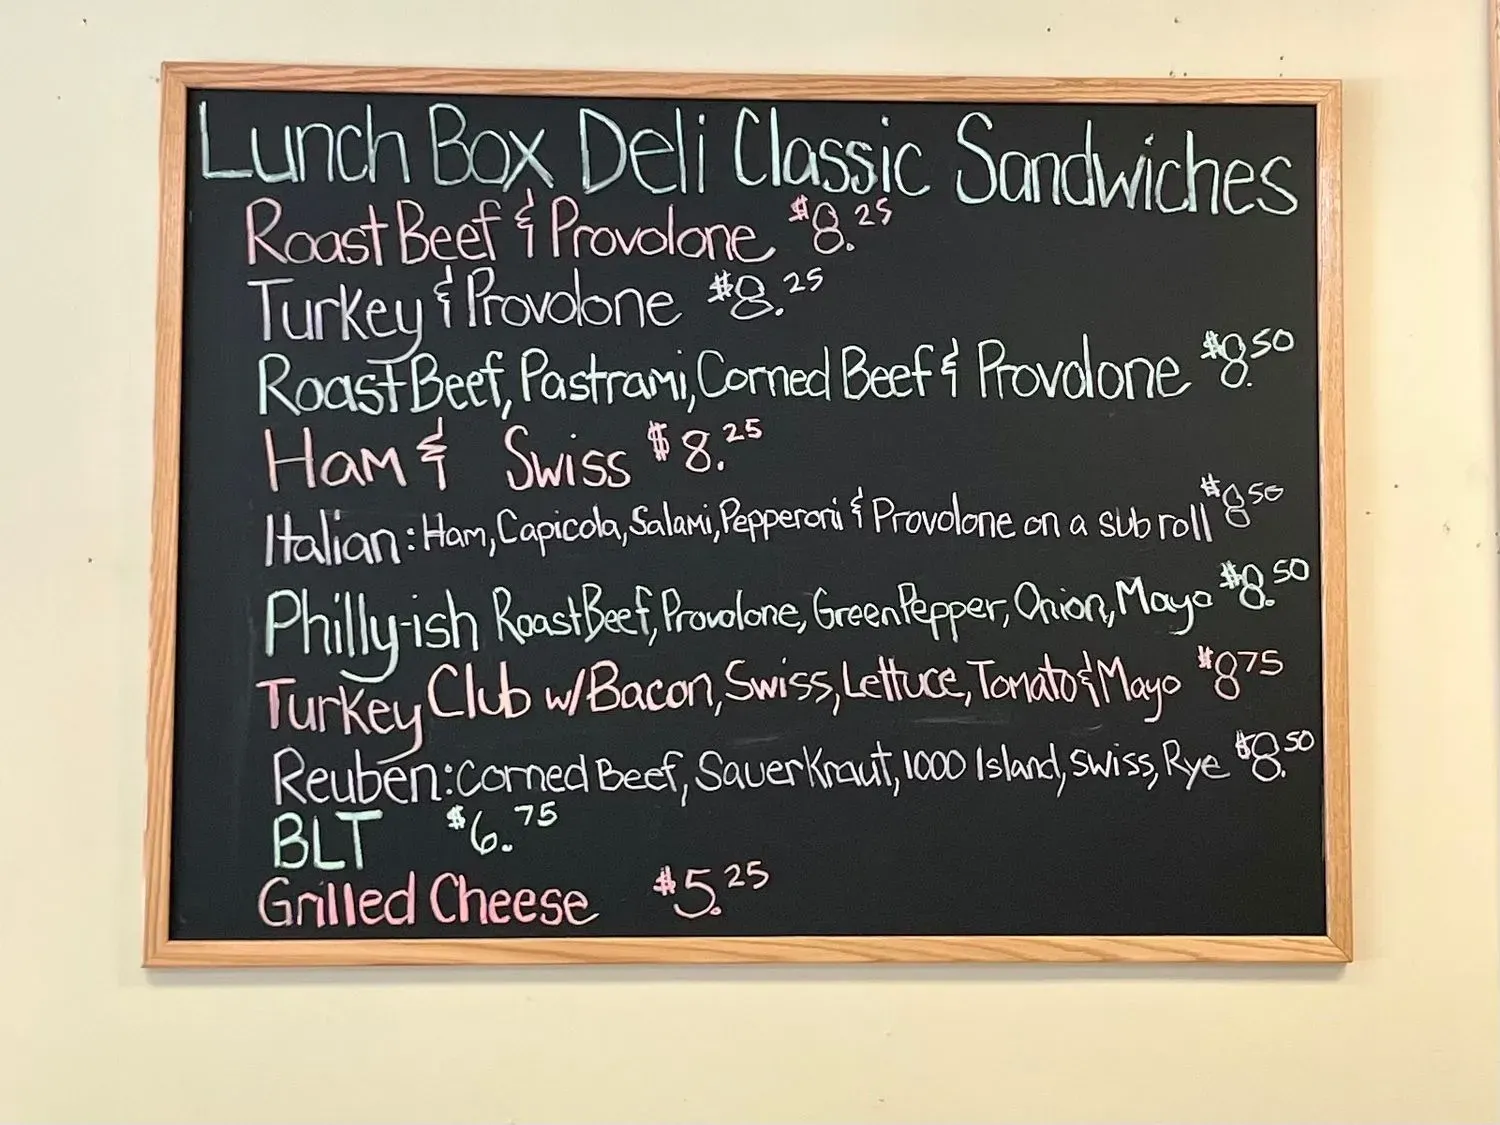 Lunch Box Deli Classic Sandwiches
Roast Beef & Provolone $8.25
Turkey & Provolone $8.25
Roast Beef, Pastrami, Corned Beef & Provolone $8.50
Ham & Swiss $8.25
Italian: Ham, Capicola, Salami, Pepperoni & Provolone on a sub roll $8.50
Philly-ish Roast Beef, Provolone, Green Pepper, Onion, Mayo $8.50
Turkey Club w/Bacon, Swiss, Lettuce, Tomato & Mayo $8.75
Reuben: Corned Beef, SauerKraut, 1000 Island, Swiss, Rye $8.50
BLT $6.75
Grilled Cheese $5.25